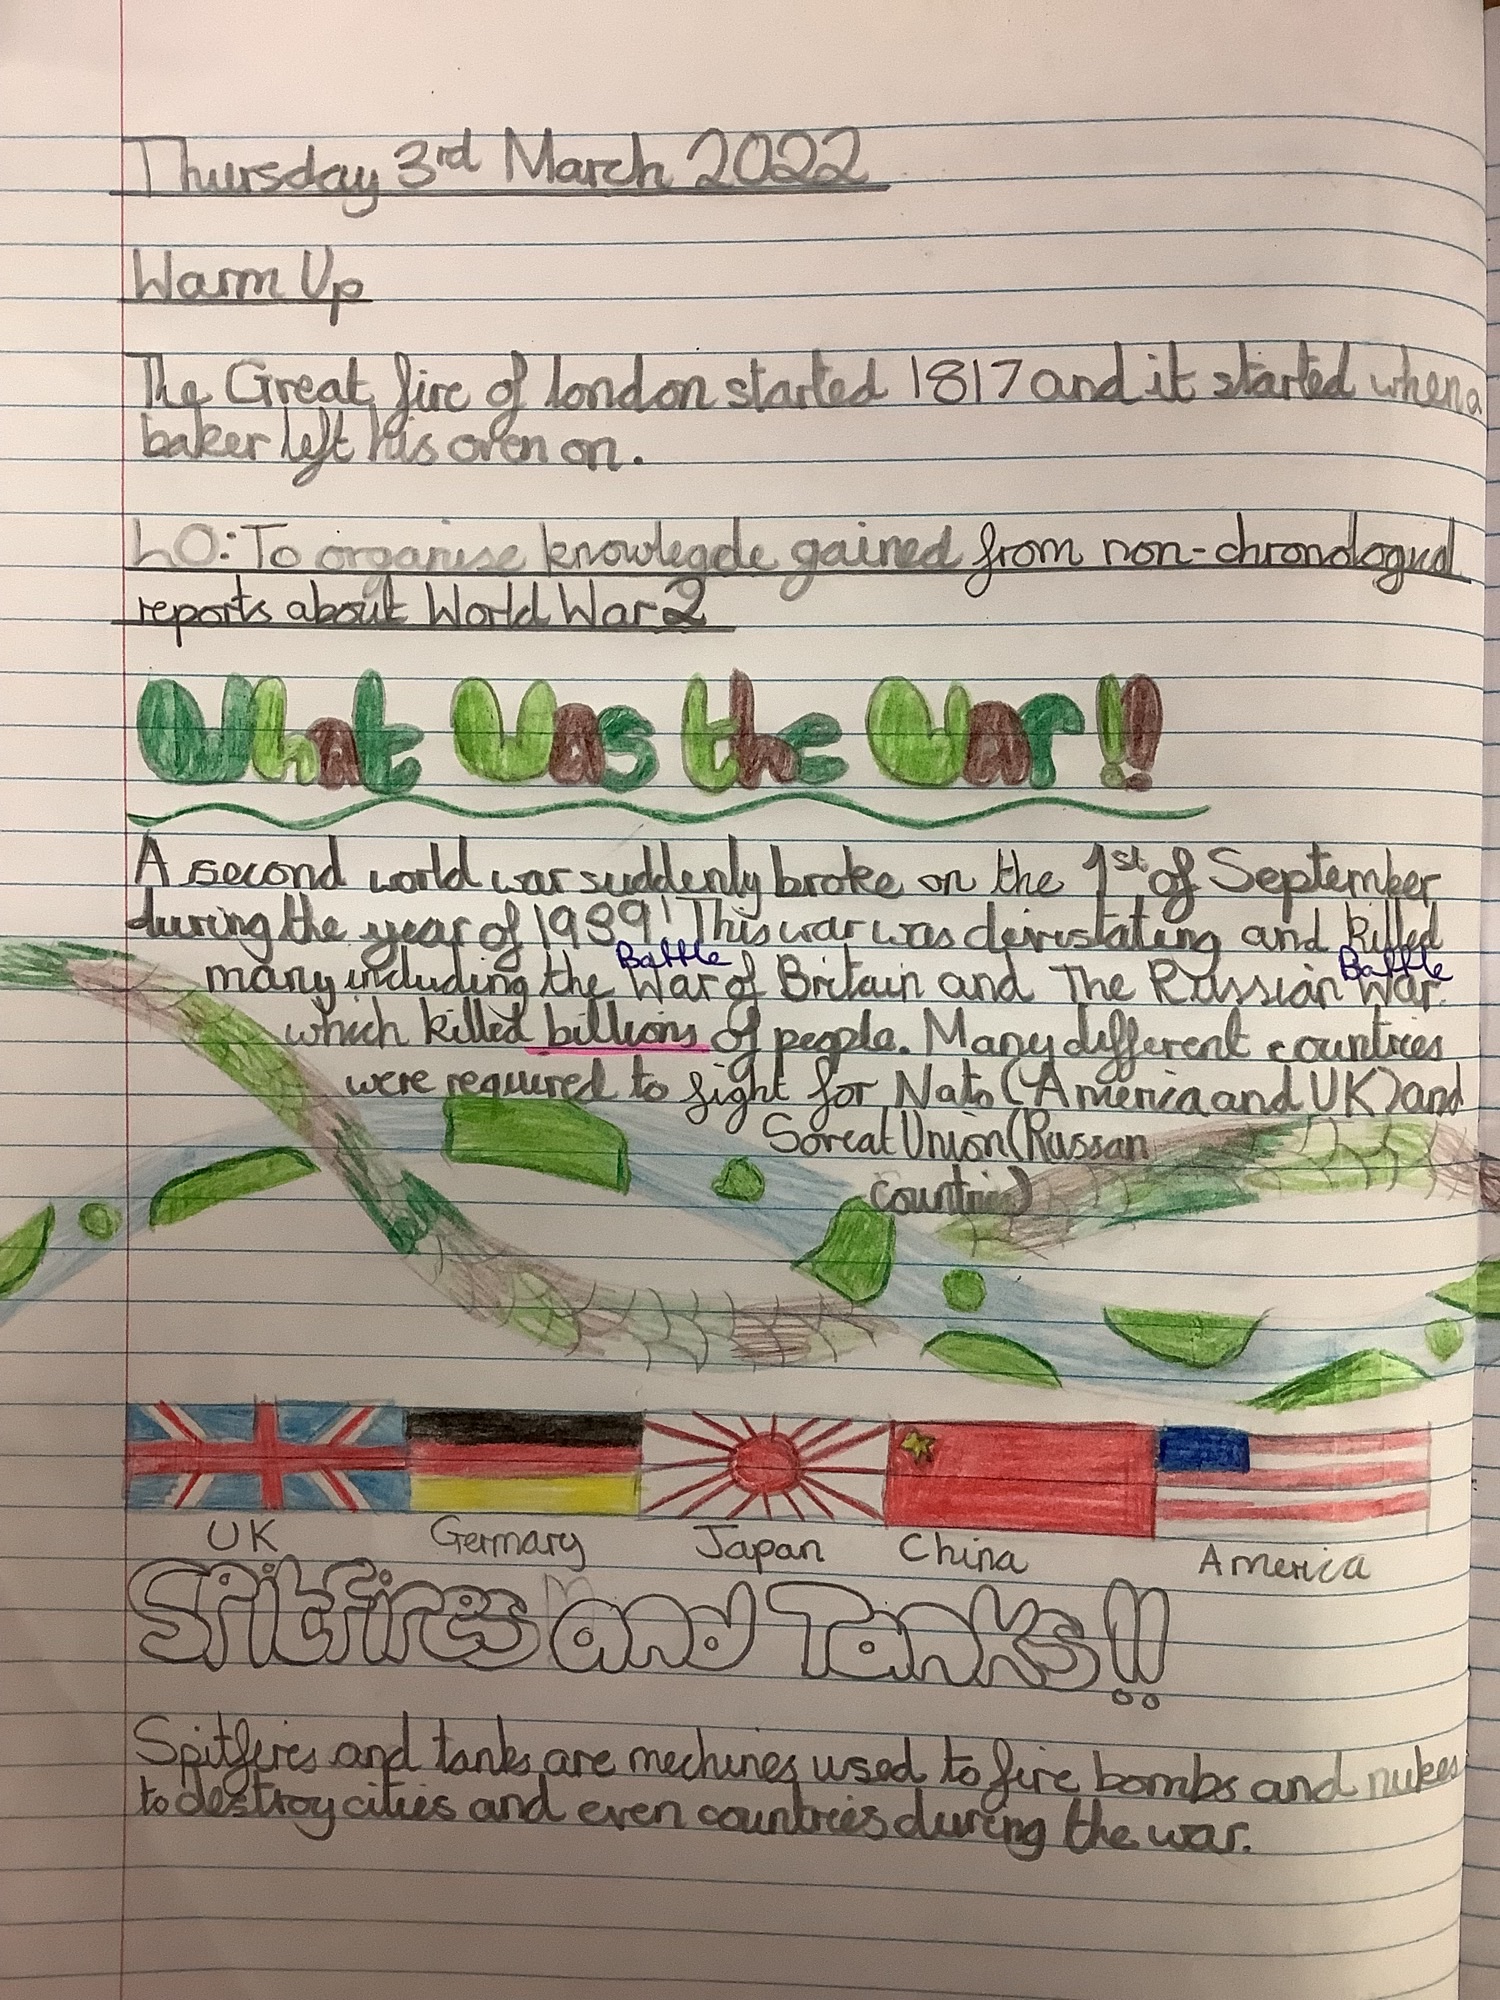 Thursday 3rd March 2022
Warm Up
The Great fire of london started 1817 and it started when a
baker left his oven on.
LO: To organise knowlegde gained from non-chronologial
reports about World War 2
What Was the War!!
A second world war suddenly broke on the 1st of September
during the year of 1939! This war was devistating and killed
Battle Battle
many including the War of Britain and The Russian War.
which killed billions of people. Many different countries
were required to fight for Nato (America and UK) and
Soveat Union (Russan
countries)
UK Germany Japan China America
Spitfires and Tanks!!
Spitfires and tanks are mechines used to fire bombs and nukes
to destroy cities and even countries during the war.